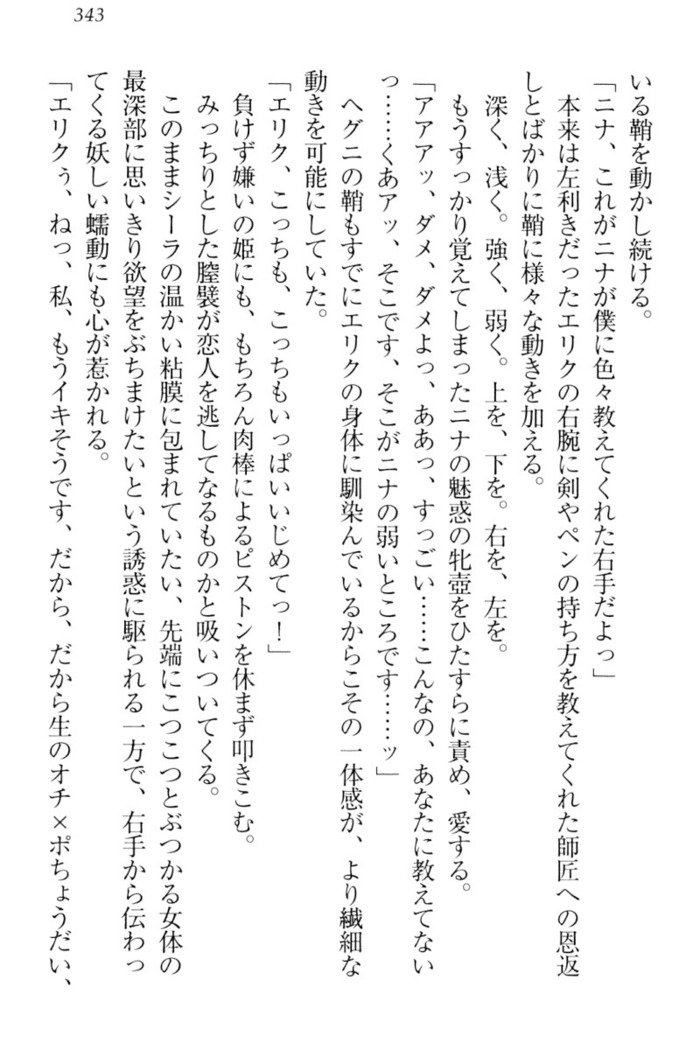 343
いる鞘を動かし続ける。
「ニナ、これがニナが僕に色々教えてくれた右手だよっ」
本来は左利きだったエリクの右腕に剣やペンの持ち方を教えてくれた師匠への恩返
しとばかりに鞘に様々な動きを加える。
深く、浅く。強く、弱く。上を、下を。右を、左を。
もうすっかり覚えてしまったニナの魅惑の牝壺をひたすらに責め、愛する。
「アアアッ、ダメ、ダメよっ、ああっ、すっごい……こんなの、あなたに教えてない
っ……くあアッ、そこです、そこがニナの弱いところです……ッ」
ヘグニの鞘もすでにエリクの身体に馴染んでいるからこその一体感が、より繊細な
動きを可能にしていた。
「エリク、こっちも、こっちもいっぱいいじめてっ！」
負けず嫌いの姫にも、もちろん肉棒によるピストンを休まず叩きこむ。
みっちりとした膣襞が恋人を逃してなるものかと吸いついてくる。
このままシーラの温かい粘膜に包まれていたい、先端にこつこつとぶつかる女体の
最深部に思いきり欲望をぶちまけたいという誘惑に駆られる一方で、右手から伝わっ
てくる妖しい蠕動にも心が惹かれる。
「エリクぅ、ねっ、私、もうイキそうです、だから、だから生のオチ×ポちょうだい、